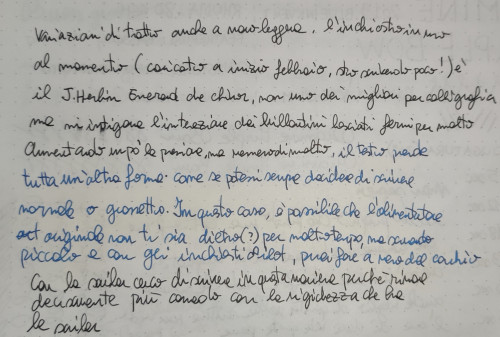 Variazioni di tratto anche a mano leggera. L'inchiostro in uso
al momento (caricato a inizio febbraio, sto scrivendo poco!) è
il J. Herbin Emerald de chivor, non uno dei migliori per calligraphia
ma mi intrigava l'interazione dei brillantini lasciati fermi per molto
Aumentando un pò la pressione, ma nemmeno di molto, il testo prende
tutta un'altra forma. come se potessi sempre decidere di scrivere
normale o grassetto. In questo caso, è possibile che l'alimentatore
originale non ti sia dietro(?) per molto tempo, ma essendo
piccolo e con gli inchiostri Pilot, puoi fare a meno del
Con la sailor cerco di scrivere in questa maniera perché rimane
decisamente più comodo con la rigidezza che ha
la sailor